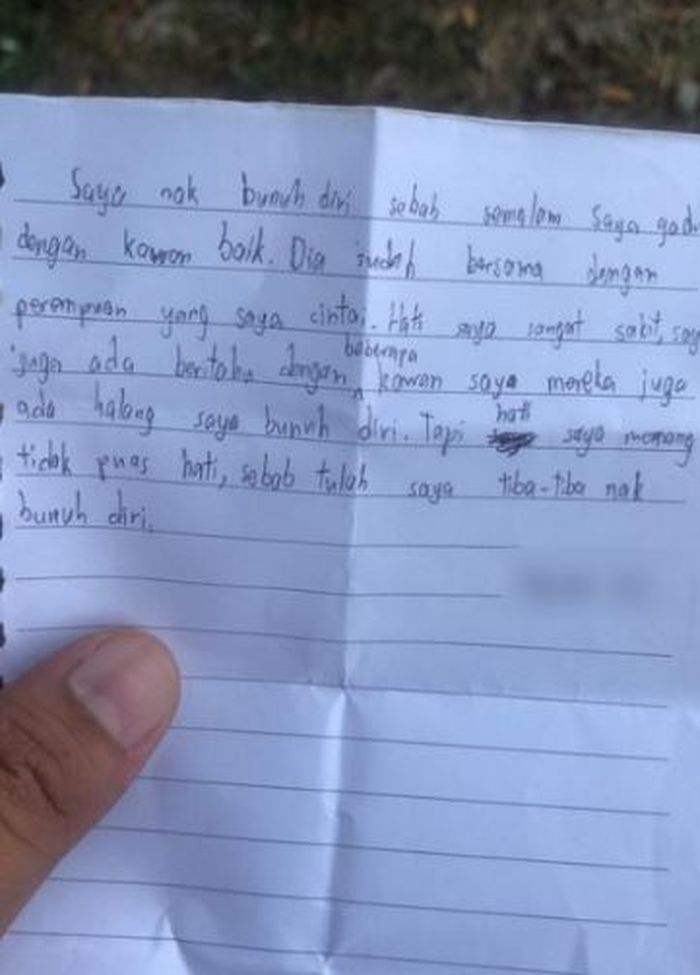 Saya nak bunuh diri sebab semalam saya
dengan kawan baik. Dia sudah bersama dengan
perempuan yang saya cintai. Hati saya sangat sakit,
juga ada beritahu dengan beberapa kawan saya mereka juga
ada halang saya bunuh diri. Tapi hati saya memang
tidak puas hati, sebab tulah saya tiba-tiba nak
bunuh diri.